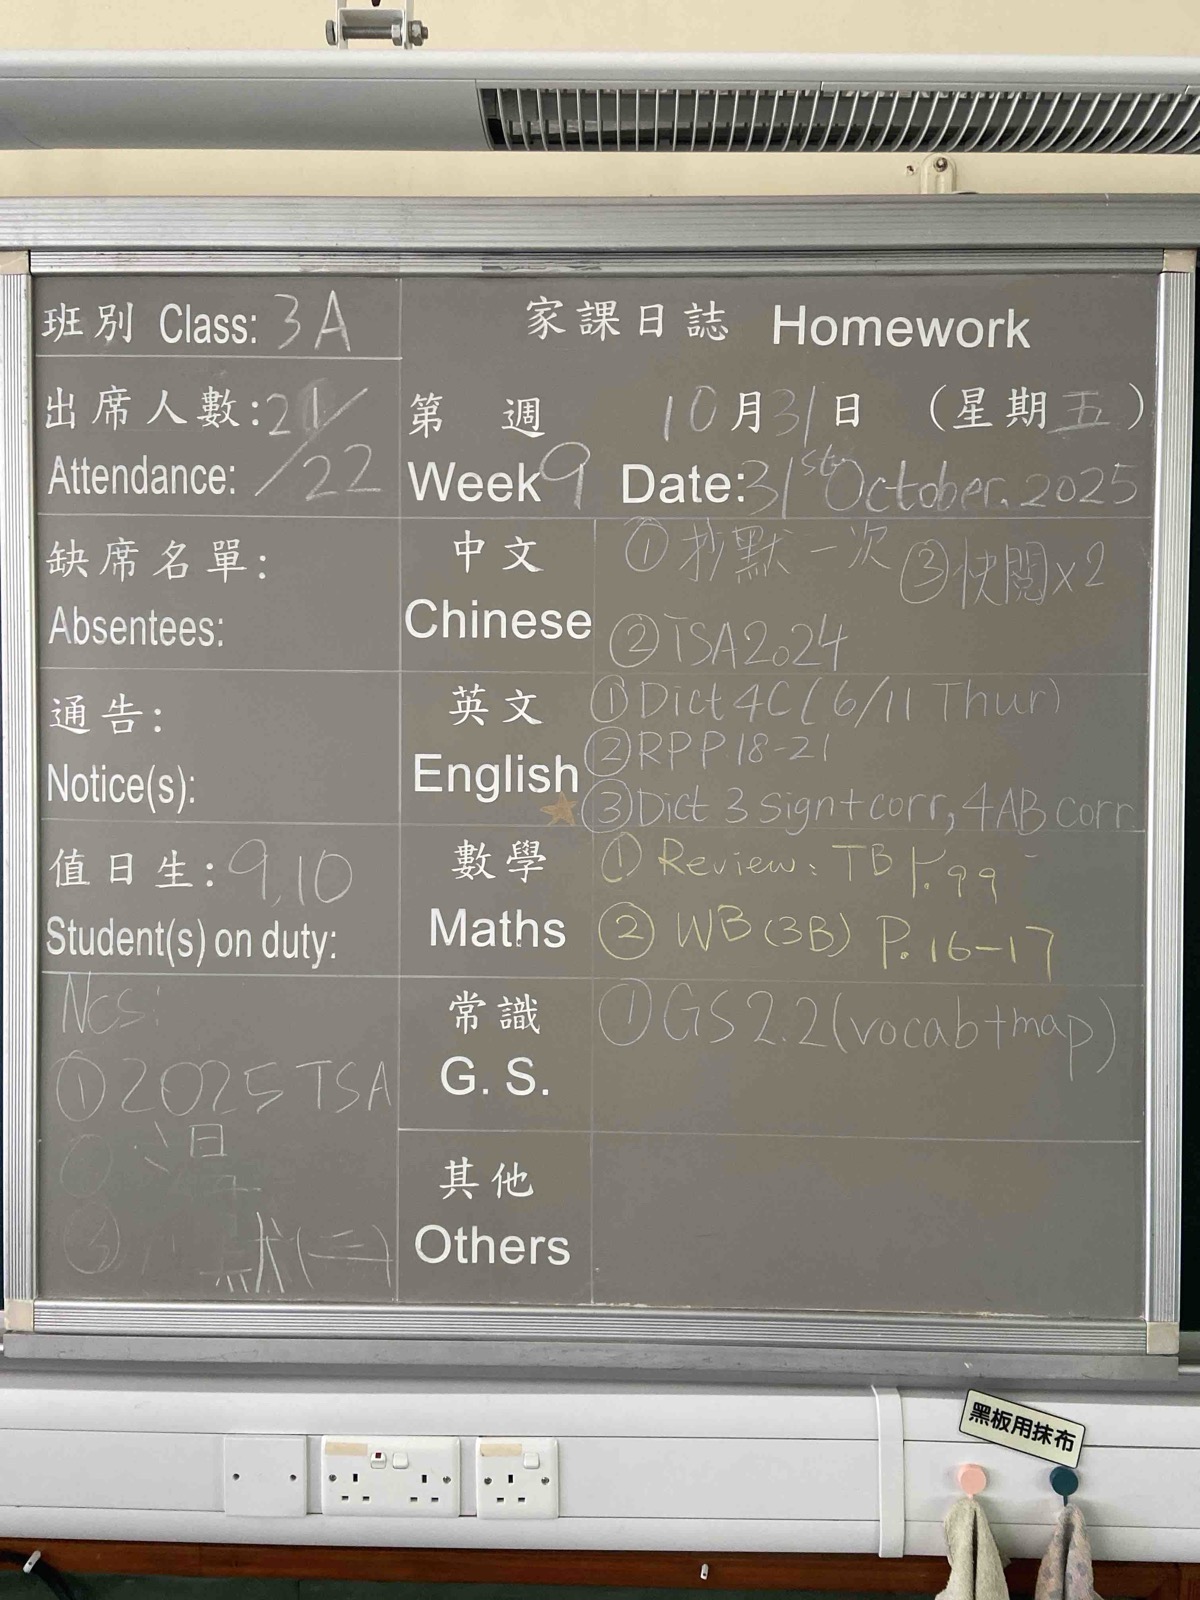 班別 Class: 3A
家課日誌 Homework
出席人數: 21/
Attendance: /22
第 週 10月31日 (星期五)
Week 9 Date: 31st October. 2025
缺席名單:
Absentees:
中文
Chinese
① 抄默一次 ③ 快閱x2
② TSA2024
通告:
Notice(s):
英文
English
① Dict 4C (6/11 Thur)
② RP P.18-21
③ Dict 3 sign+corr, 4AB corr.
值日生: 9,10
Student(s) on duty:
數學
Maths
① Review: TB P.99
② WB (3B) P.16-17
Ncs:
① 2025 TSA
②
③ 默(三)
常識
G. S.
① GS 2.2 (vocab+map)
其他
Others
黑板用抹布